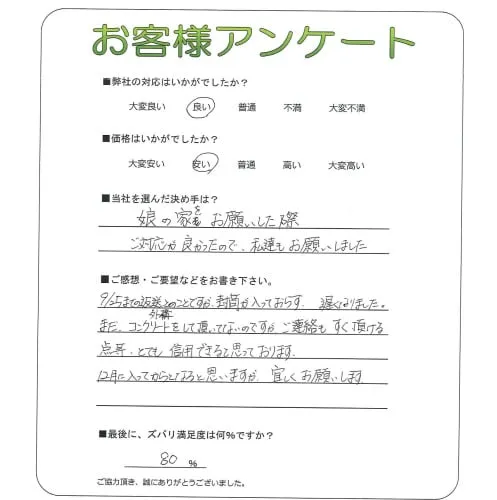 お客様アンケート
■弊社の対応はいかがでしたか？
大変良い 良い 普通 不満 大変不満
■価格はいかがでしたか？
大変安い 安い 普通 高い 大変高い
■当社を選んだ決め手は？
娘の家をお願いした際
ご対応が良かったので、私達もお願いしました
■ご感想・ご要望などをお書き下さい。
までの返送とのことですが、封筒が入っておらず、遅くなりました。
外構
まだ、コンクリートをして頂いてないのですが、ご連絡もすぐ頂ける
点等、とても信用できると思っております。
12月に入ってからとなると思いますが、宜しくお願いします
■最後に、ズバリ満足度は何%ですか？
80 %
ご協力頂き、誠にありがとうございました。